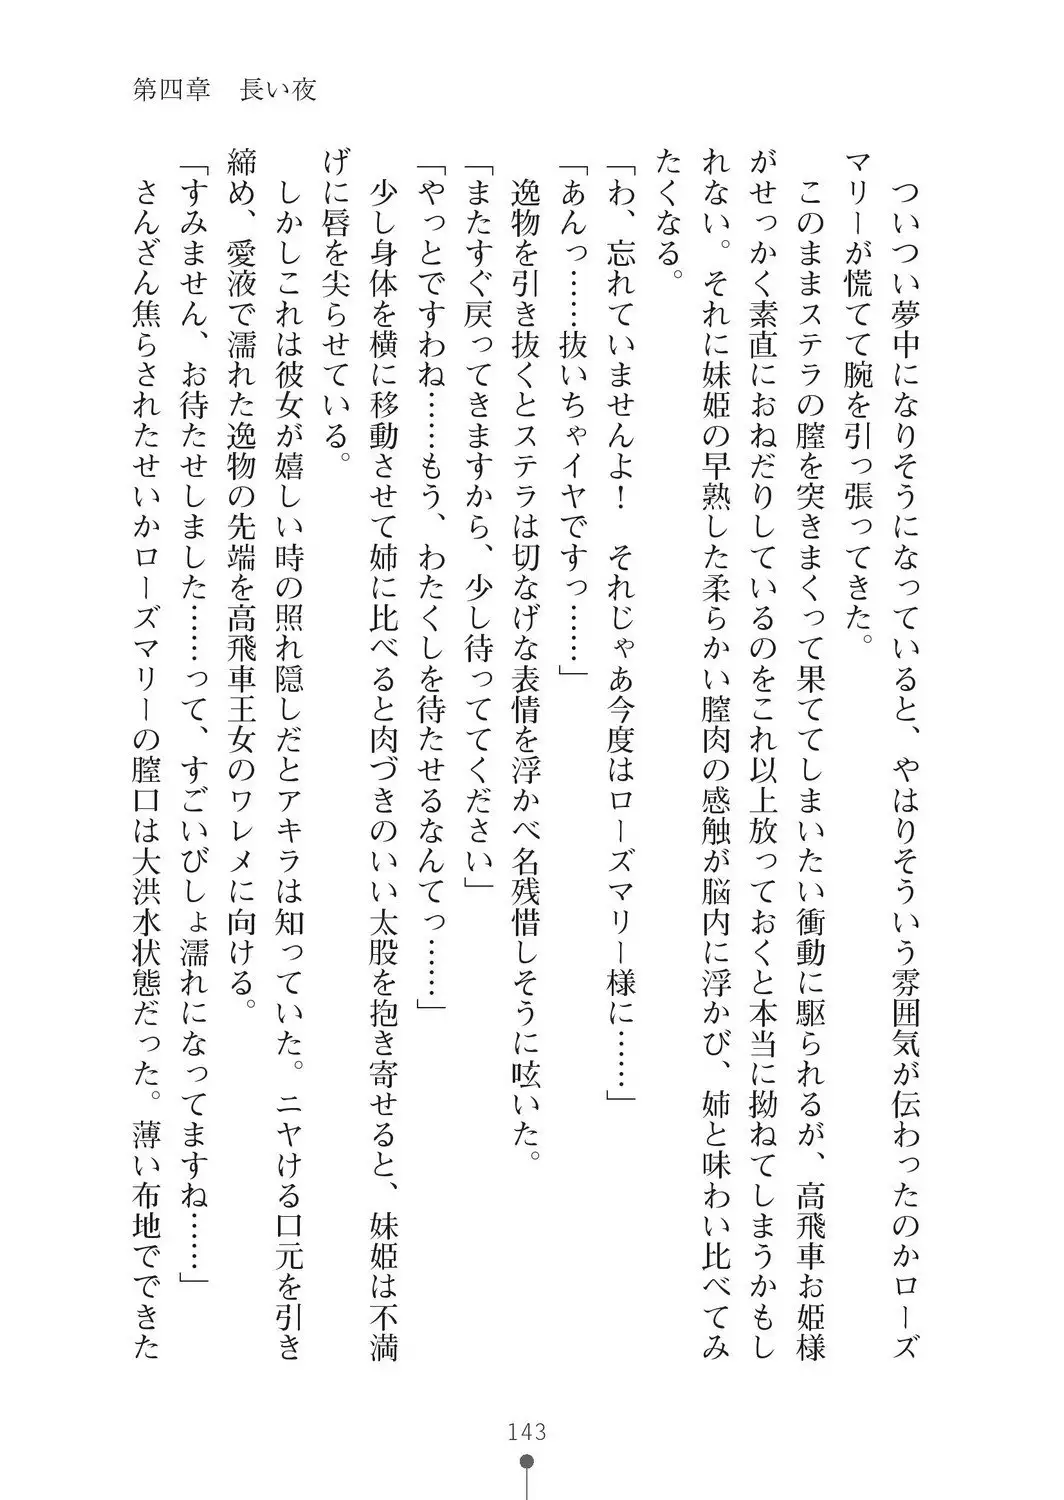 第四章　長い夜
ついつい夢中になりそうになっていると、やはりそういう雰囲気が伝わったのかローズ
マリーが慌てて腕を引っ張ってきた。
このままステラの膣を突きまくって果ててしまいたい衝動に駆られるが、高飛車お姫様
がせっかく素直におねだりしているのをこれ以上放っておくと本当に拗ねてしまうかもし
れない。それに妹姫の早熟した柔らかい膣肉の感触が脳内に浮かび、姉と味わい比べてみ
たくなる。
「わ、忘れていませんよ！　それじゃあ今度はローズマリー様に……」
「あんっ……抜いちゃイヤですっ……」
逸物を引き抜くとステラは切なげな表情を浮かべ名残惜しそうに呟いた。
「またすぐ戻ってきますから、少し待っててください」
「やっとですわね……もう、わたくしを待たせるなんてっ……」
少し身体を横に移動させて姉に比べると肉づきのいい太股を抱き寄せると、妹姫は不満
げに唇を尖らせている。
しかしこれは彼女が嬉しい時の照れ隠しだとアキラは知っていた。ニヤける口元を引き
締め、愛液で濡れた逸物の先端を高飛車王女のワレメに向ける。
「すみません、お待たせしました……って、すごいびしょ濡れになってますね……」
さんざん焦らされたせいかローズマリーの膣口は大洪水状態だった。薄い布地でできた
143